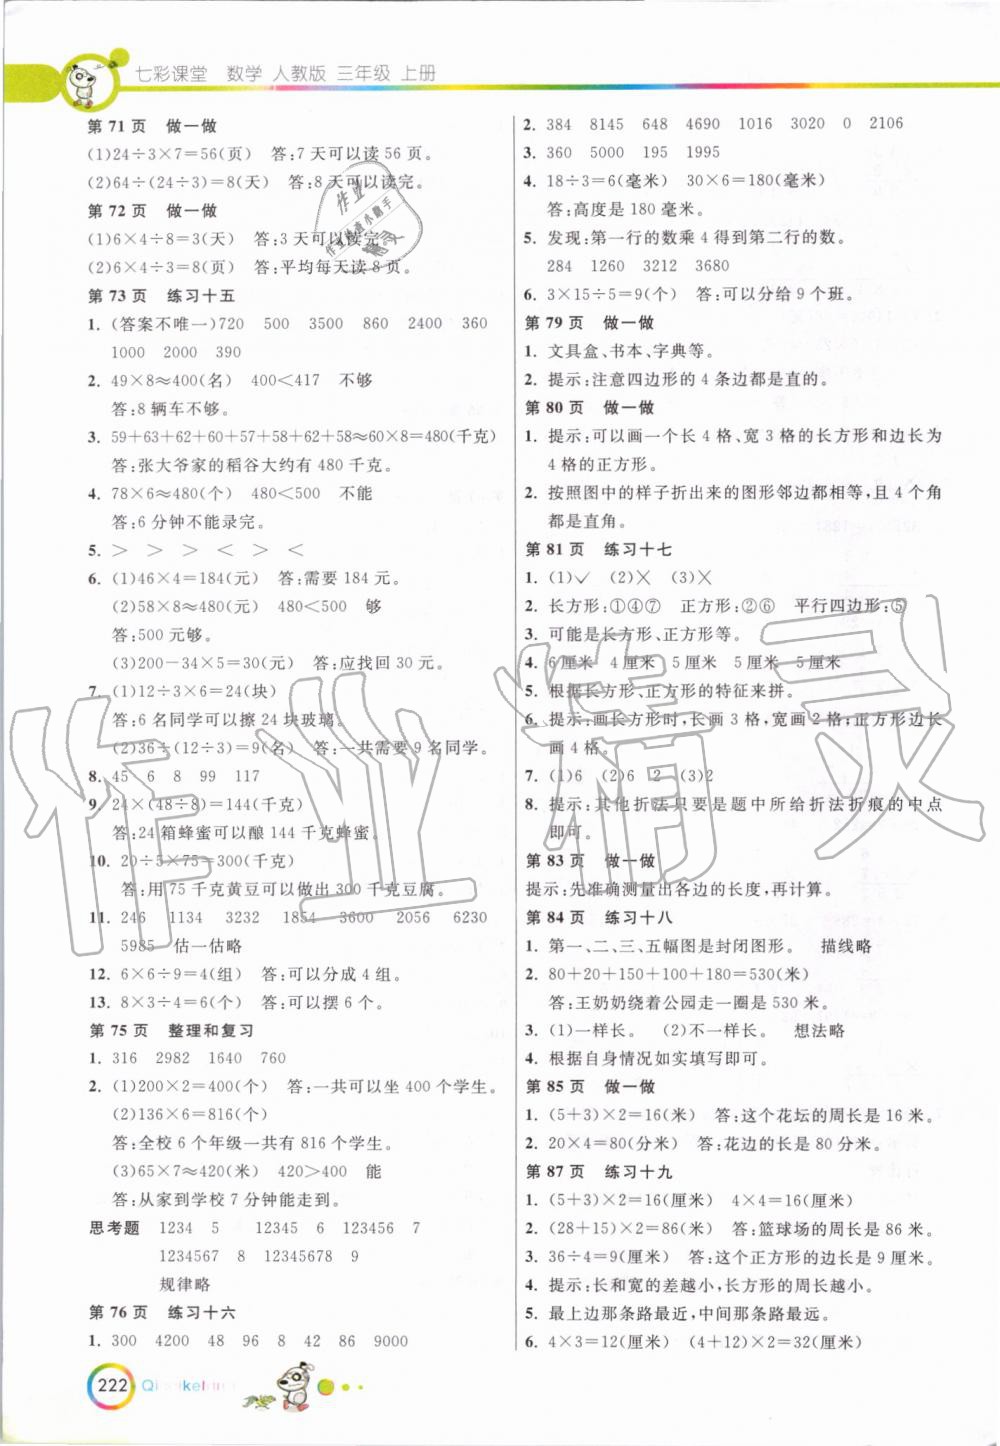 七彩课堂 数学 人教版 三年级 上册
第 71 页 做一做
(1)24÷3×7=56(页) 答:7 天可以读 56 页。
(2)64÷(24÷3)=8(天) 答:8 天可以读完。
第 72 页 做一做
(1)6×4÷8=3(天) 答:3 天可以读完。
(2)6×4÷3=8(页) 答:平均每天读 8 页。
第 73 页 练习十五
1. (答案不唯一)720 500 3500 860 2400 360
1000 2000 390
2. 49×8≈400(名) 400<417 不够
答:8 辆车不够。
3. 59+63+62+60+57+58+62+58≈60×8=480(千克)
答:张大爷家的稻谷大约有 480 千克。
4. 78×6≈480(个) 480<500 不能
答:6 分钟不能录完。
5. > > > < > <
6. (1)46×4=184(元) 答:需要 184 元。
(2)58×8≈480(元) 480<500 够
答:500 元够。
(3)200-34×5=30(元) 答:应找回 30 元。
7. (1)12÷3×6=24(块)
答:6 名同学可以擦 24 块玻璃。
(2)36÷(12÷3)=9(名) 答:一共需要 9 名同学。
8. 45 6 8 99 117
9. 24×(48÷8)=144(千克)
答:24 箱蜂蜜可以酿 144 千克蜂蜜。
10. 20÷5×75=300(千克)
答:用 75 千克黄豆可以做出 300 千克豆腐。
11. 246 1134 3232 1854 3600 2056 6230
5985 估一估略
12. 6×6÷9=4(组) 答:可以分成 4 组。
13. 8×3÷4=6(个) 答:可以摆 6 个。
第 75 页 整理和复习
1. 316 2982 1640 760
2. (1)200×2=400(个) 答:一共可以坐 400 个学生。
(2)136×6=816(个)
答:全校 6 个年级一共有 816 个学生。
(3)65×7≈420(米) 420>400 能
答:从家到学校 7 分钟能走到。
思考题 1234 5 12345 6 123456 7
1234567 8 12345678 9
规律略
第 76 页 练习十六
1. 300 4200 48 96 8 42 86 9000
222
2. 384 8145 648 4690 1016 3020 0 2106
3. 360 5000 195 1995
4. 18÷3=6(毫米) 30×6=180(毫米)
答:高度是 180 毫米。
5. 发现:第一行的数乘 4 得到第二行的数。
284 1260 3212 3680
6. 3×15÷5=9(个) 答:可以分给 9 个班。
第 79 页 做一做
1. 文具盒、书本、字典等。
2. 提示:注意四边形的 4 条边都是直的。
第 80 页 做一做
1. 提示:可以画一个长 4 格、宽 3 格的长方形和边长为
4 格的正方形。
2. 按照图中的样子折出来的图形邻边都相等,且 4 个角
都是直角。
第 81 页 练习十七
1. (1)✓ (2)× (3)×
2. 长方形:①④⑦ 正方形:②⑥ 平行四边形:⑤
3. 可能是长方形、正方形等。
4. 6 厘米 4 厘米 5 厘米 5 厘米 5 厘米
5. 根据长方形、正方形的特征来拼。
6. 提示:画长方形时,长画 3 格,宽画 2 格;正方形边长
画 4 格。
7. (1)6 (2)6 2 (3)2
8. 提示:其他折法只要是题中所给折法折痕的中点
即可。
第 83 页 做一做
提示:先准确测量出各边的长度,再计算。
第 84 页 练习十八
1. 第一、二、三、五幅图是封闭图形。 描线略
2. 80+20+150+100+180=530(米)
答:王奶奶绕着公园走一圈是 530 米。
3. (1)一样长。 (2)不一样长。 想法略
4. 根据自身情况如实填写即可。
第 85 页 做一做
1. (5+3)×2=16(米) 答:这个花坛的周长是 16 米。
2. 20×4=80(分米) 答:花边的长是 80 分米。
第 87 页 练习十九
1. (5+3)×2=16(厘米) 4×4=16(厘米)
2. (28+15)×2=86(米) 答:篮球场的周长是 86 米。
3. 36÷4=9(厘米) 答:这个正方形的边长是 9 厘米。
4. 提示:长和宽的差越小,长方形的周长越小。
5. 最上边那条路最近,中间那条路最远。
6. 4×3=12(厘米) (4+12)×2=32(厘米)
作业精灵